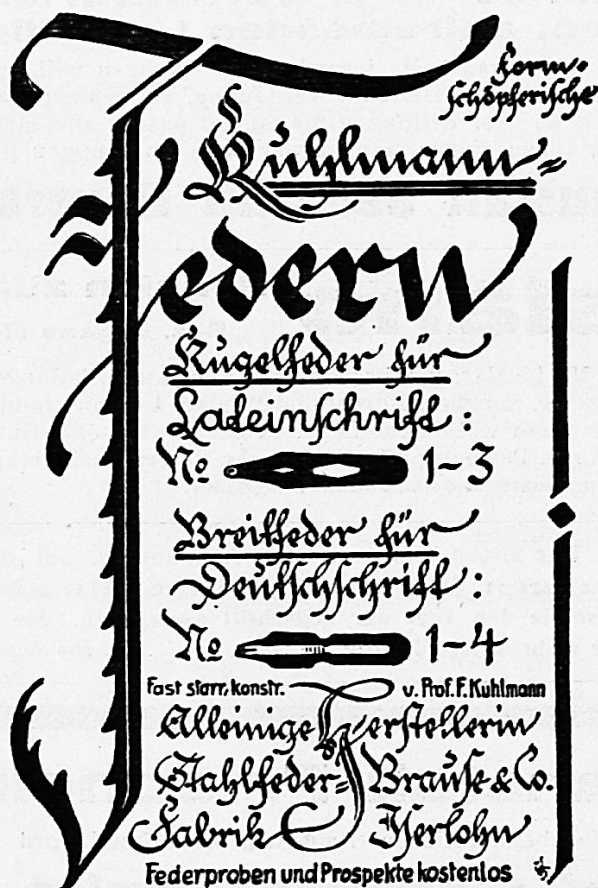 Form-
schöpferische
Kuhlmann=
Federn
Kugelfeder für
Lateinschrift:
No 1-3
Breitfeder für
Deutschschrift:
No 1-4
Fast starr, konstr. v. Prof. F. Kuhlmann
Alleinige Herstellerin
Stahlfeder= Brause & Co.
Fabrik Iserlohn
Federproben und Prospekte kostenlos